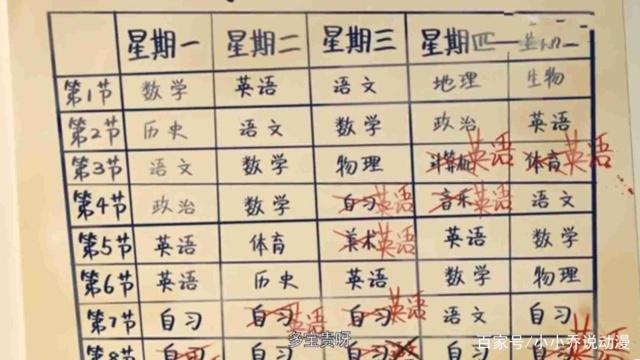 星期一 星期二 星期三 星期四
第1节 数学 英语 语文 地理 生物
第2节 历史 语文 数学 政治 英语
第3节 语文 数学 物理 计算机 英语 体育 英语
第4节 政治 数学 自习 英语 音乐 英语 语文
第5节 英语 体育 美术 英语 英语 数学
第6节 英语 历史 英语 数学 物理
第7节 自习 自习 英语 自习 英语 语文 自习
多宝贵呀
第8节 自习 自习 自习
百家号/小小乔说动漫